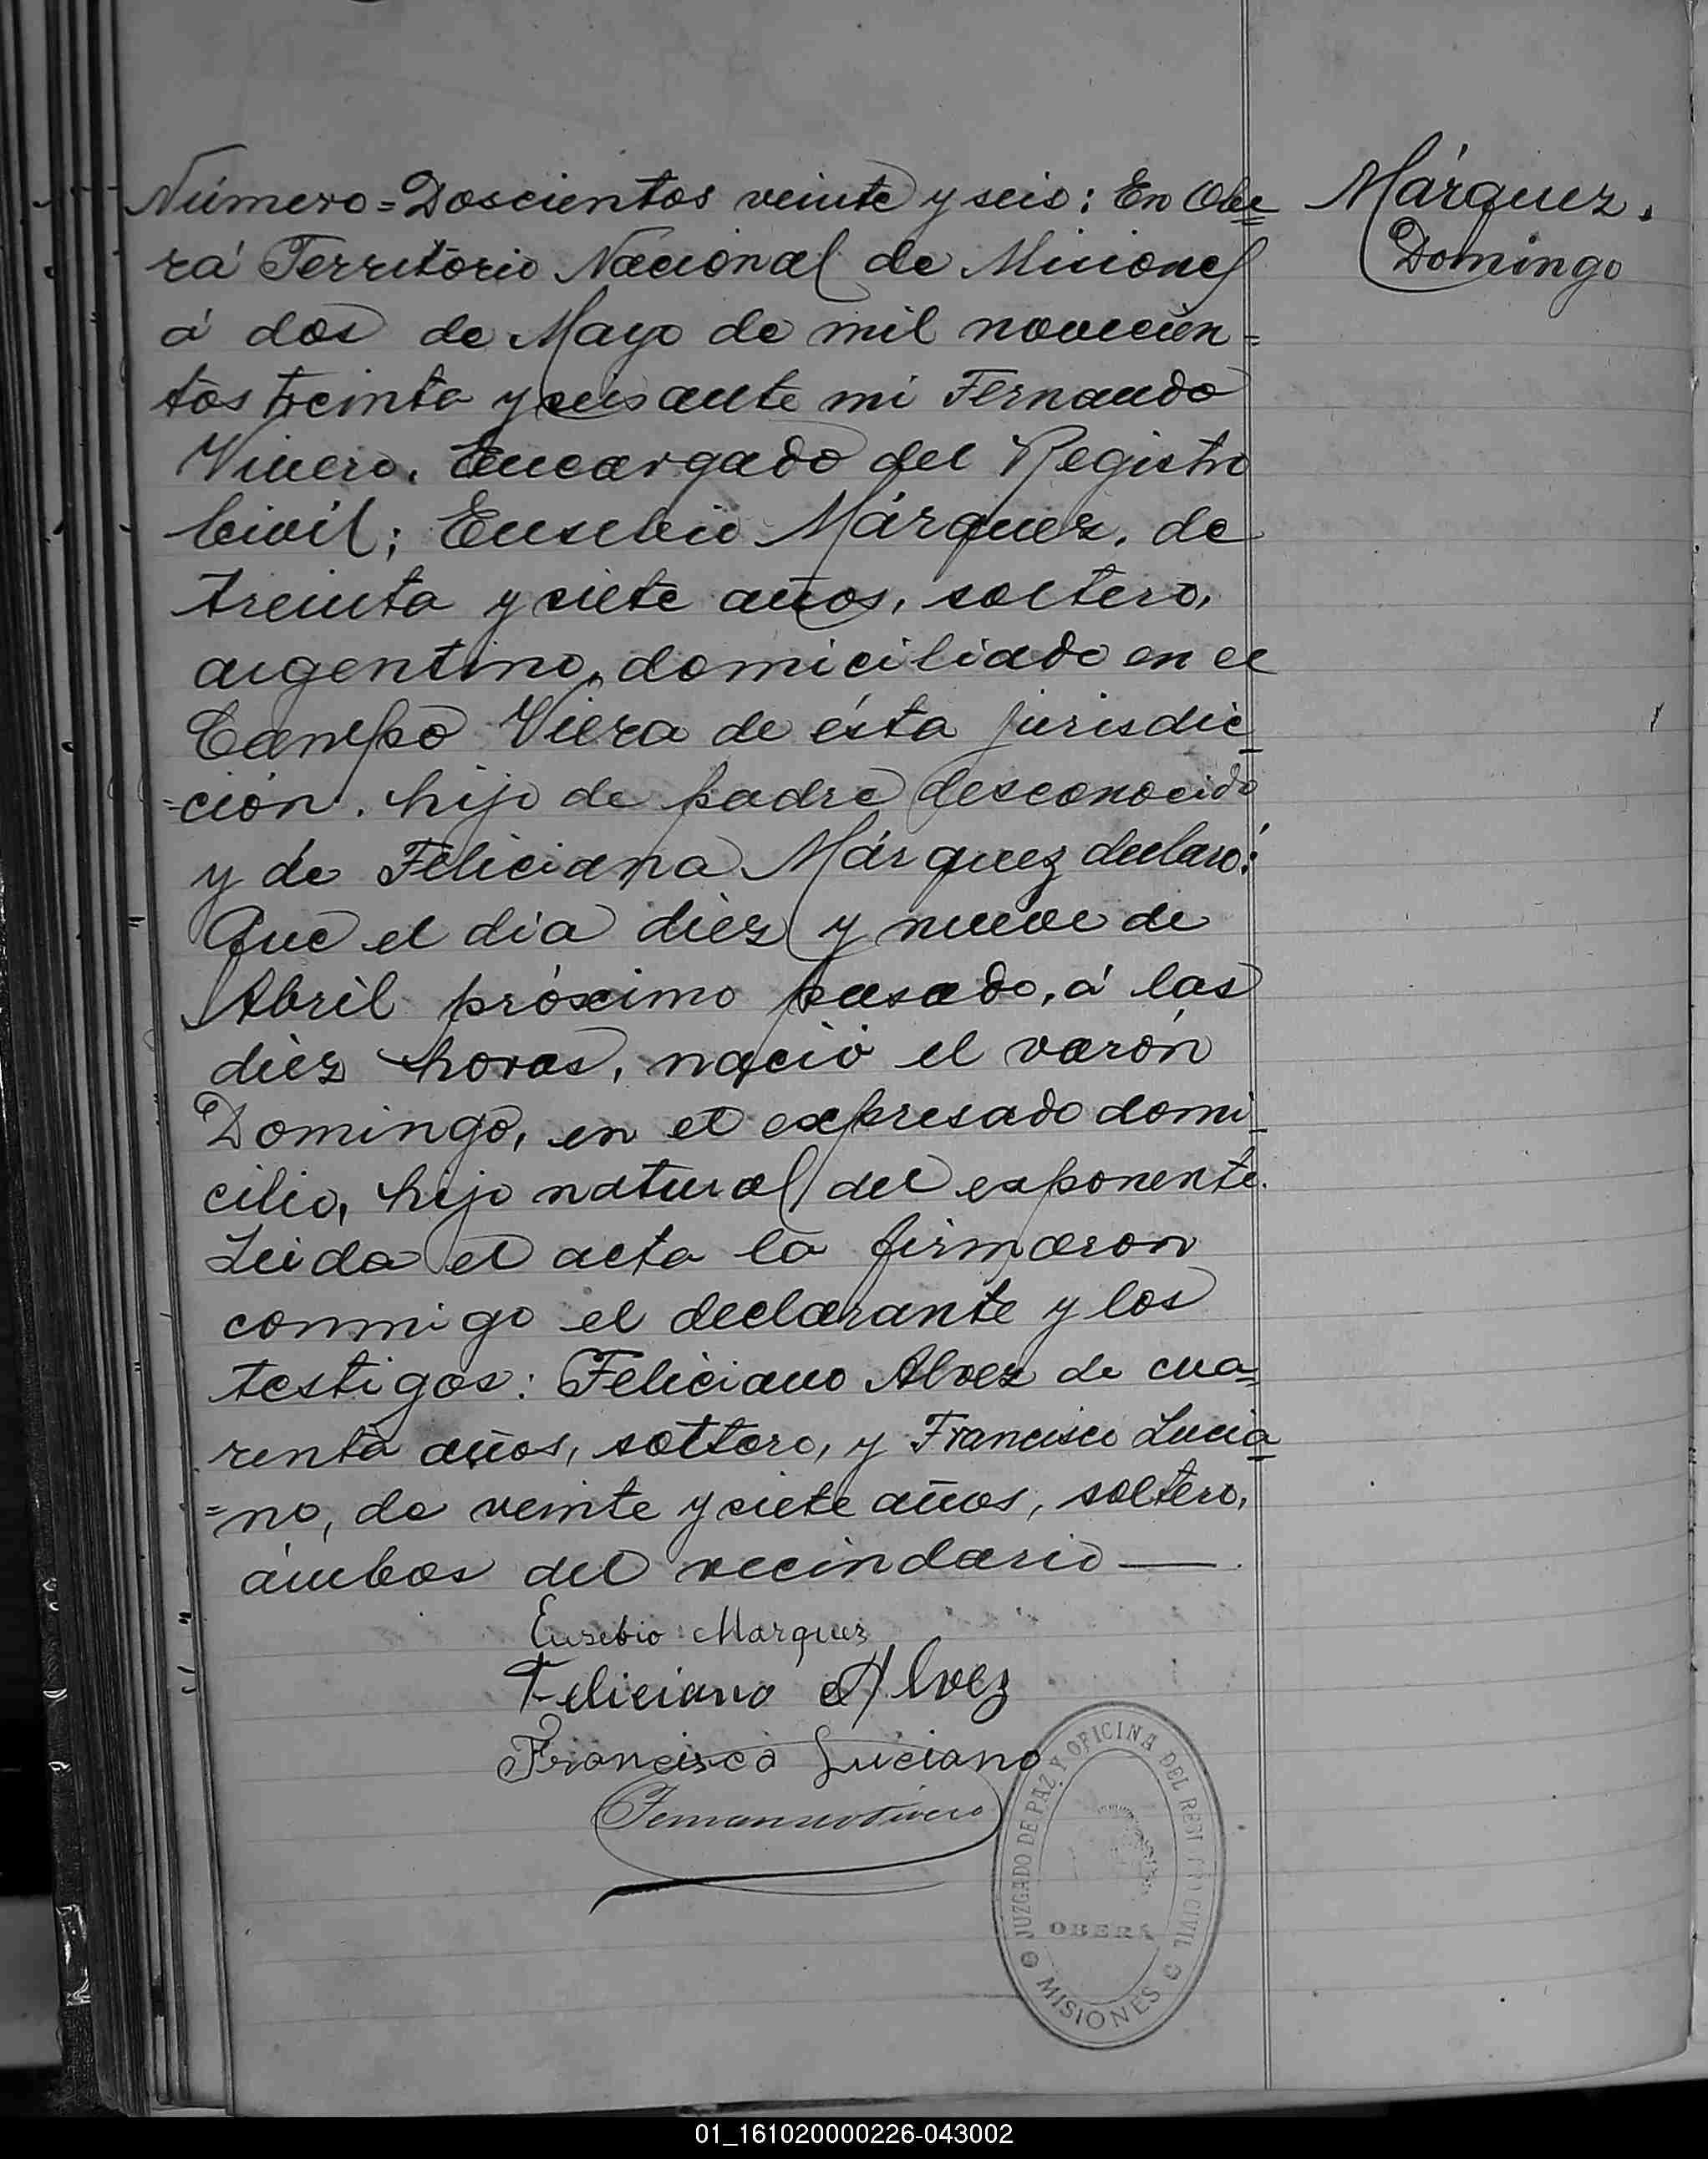 Número = Doscientos veinte y seis: En Obe=
rá Territorio Nacional de Misiones
á dos de Mayo de mil novecien=
tos treinta y seis ante mi Fernando
Vivero, Encargado del Registro
Civil; Eusebio Márquez, de
treinta y siete años, soltero,
argentino, domiciliado en el
Campo Viera de ésta jurisdic=
=ción, hijo de padre desconocido
y de Feliciana Márquez declaró:
Que el dia diez y nueve de
Abril próximo pasado, á las
diez horas, nació el varón
Domingo, en el expresado domi=
cilio, hijo natural del exponente.
Leida el acta la firmaron
conmigo el declarante y los
testigos: Feliciano Alvez de cua=
renta años, soltero, y Francisco Lucia=
=no, de veinte y siete años, soltero,
ámbos del vecindario —.
Márquez.
Domingo
Eusebio Marquez
Feliciano Alvez
Francisco Luciano
Fernando Vivero
JUZGADO DE PAZ Y OFICINA DEL REGISTRO CIVIL
OBERÁ
MISIONES
01_161020000226-043002